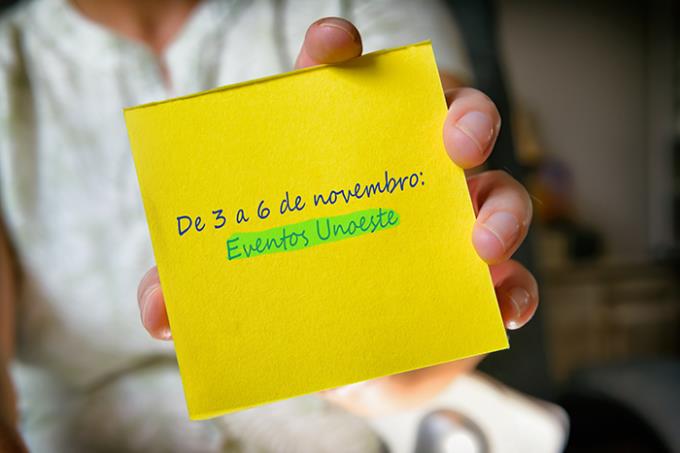 De 3 a 6 de novembro:
Eventos Unoeste